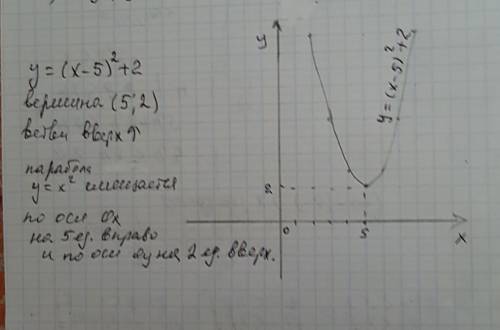 y = (x-5)² + 2
вершина (5; 2)
ветви вверх ↑
парабола
y = x² смещается
по оси Ox
на 5 ед. вправо
и по оси Oy на 2 ед. вверх.
y
y = (x-5)² + 2
2
0
5
x